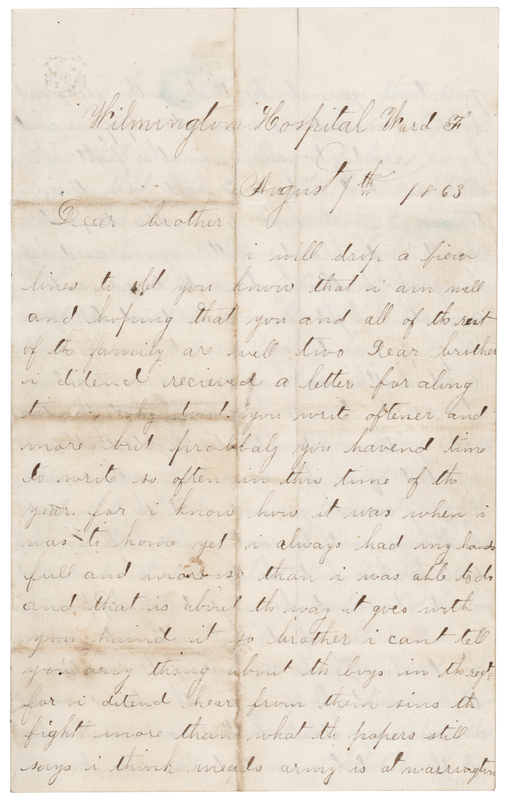 Wilmington Hospital Ward F
August 7th 1863
Dear brother
i will drop a fiew
lines to let you know that i am well
and hoping that you and all of th rest
of th family ar well two Dear brother
i ditend recieved a letter for along
time why dont you write oftener and
more but probabaly you havend time
to write so often in this time of th
year for i know how it was when i
was to home yet i always had my hands
full and more so than i was able to do
and that is about th way it goes with
you haind it so brother i cant tell
you any thing about th boys in th regt
for i ditend hear from them sins th
fight more than what th papers still
says i think meads army is at warrington